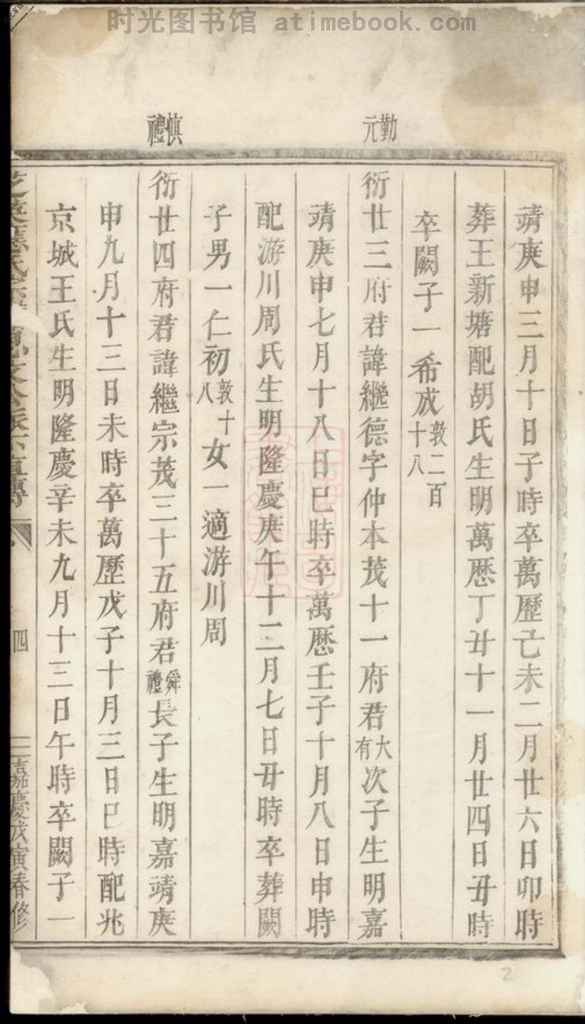 时光图书馆 atimebook.com
勤元
慎禮
靖庚申三月十日子時卒萬歷己未二月廿六日卯時
葬王新塘配胡氏生明萬懸丁丑十一月廿四日丑時
卒闕子一希成敦二百十八
衍廿三府君諱繼德字仲本茂十一府君大有次子生明嘉
靖庚申七月十八日巳時卒萬懸壬子十月八日申時
配游川周氏生明隆慶庚午十二月七日丑時卒葬闕
子男一仁初敦十八女一適游川周
衍廿四府君諱繼宗茂三十五府君舜禮長子生明嘉靖庚
申九月十三日未時卒萬歷戊子十月三日巳時配兆
京城王氏生明隆慶辛未九月十三日午時卒闕子一
四
嘉慶戊寅春修
2